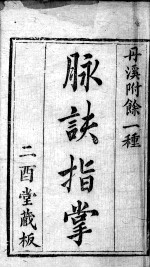 丹溪附餘一種
脉訣指掌
二酉堂藏板